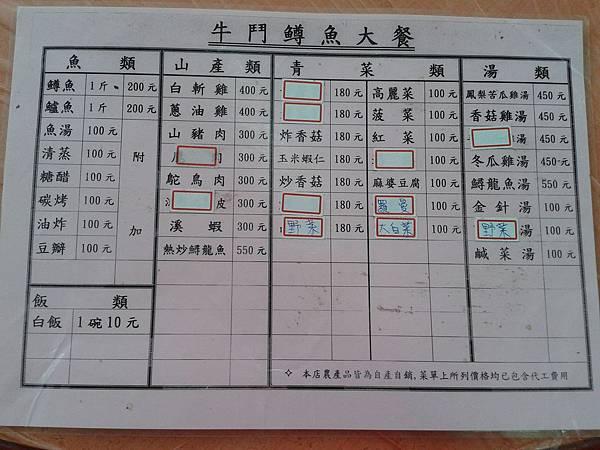 牛鬥鱒魚大餐
魚類
鱒魚 1斤 200元
鱸魚 1斤 200元
魚湯 100元
清蒸 100元
糖醋 100元
碳烤 100元
油炸 100元
豆瓣 100元
附加
飯類
白飯 1碗10元
山產類
白斬雞 400元
蔥油雞 400元
山豬肉 300元
肉 300元
鴕鳥肉 300元
皮 300元
溪蝦 300元
熱炒鱘龍魚 550元
青菜類
180元
180元
炸香菇 180元
玉米蝦仁 180元
炒香菇 180元
180元
野菜 180元
高麗菜 100元
菠菜 100元
紅菜 100元
100元
麻婆豆腐 100元
100元
大白菜 100元
湯類
鳳梨苦瓜雞湯 450元
香菇雞湯 450元
湯 450元
冬瓜雞湯 450元
鱘龍魚湯 550元
金針湯 100元
野菜湯 100元
鹹菜湯 100元
✧ 本店農產品皆為自產自銷,菜單上所列價格均已包含代工費用